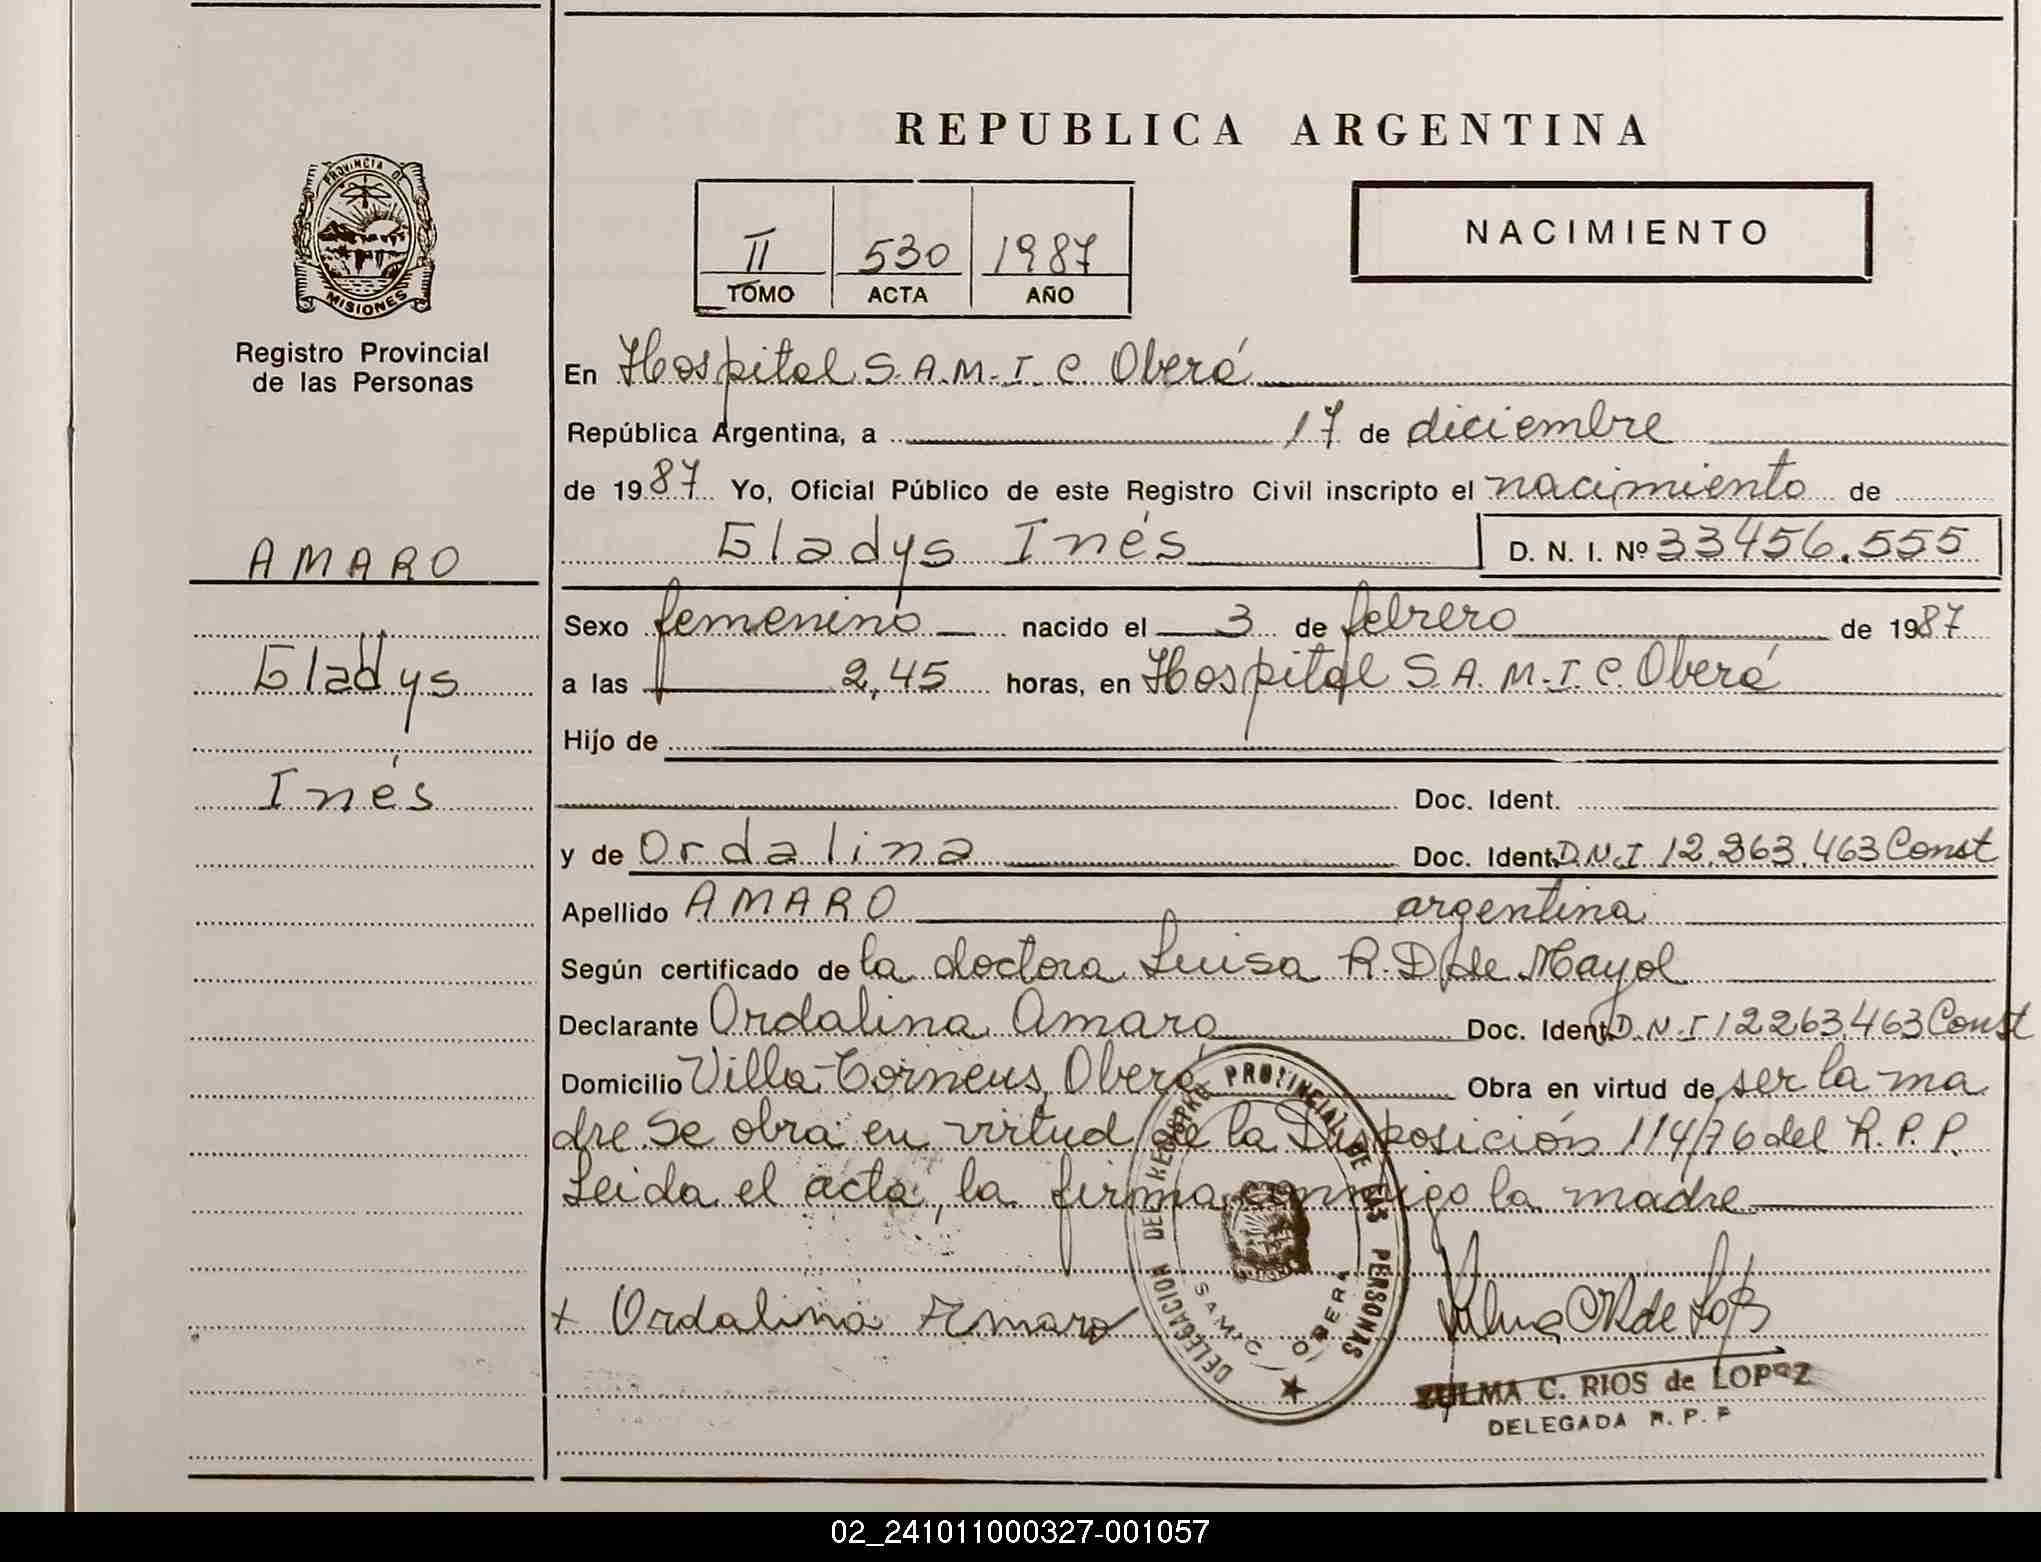 REPUBLICA ARGENTINA
PROVINCIA DE
MISIONES
Registro Provincial
de las Personas
II 530 1987
TOMO ACTA AÑO
NACIMIENTO
En Hospital S.A.M.I.C. Oberá
República Argentina, a 17 de diciembre
de 1987 Yo, Oficial Público de este Registro Civil inscripto el nacimiento de
Gladys Inés D. N. I. Nº 33456.555
AMARO
Gladys
Inés
Sexo femenino nacido el 3 de febrero de 1987
a las 2,45 horas, en Hospital S.A.M.I.C. Oberá
Hijo de
Doc. Ident.
y de Ordalina Doc. Ident. D.N.I 12.263.463 Const
Apellido AMARO argentina
Según certificado de la doctora Luisa R. D de Mayol
Declarante Ordalina Amaro Doc. Ident. D.N.I 12263.463 Const
Domicilio Villa Torneus, Oberá Obra en virtud de ser la ma
dre Se obra en virtud de la Disposición 114/76 del R.P.P.
Leida el acta, la firma conmigo la madre
DELEGACION DEL REGISTRO PROVINCIAL DE LAS PERSONAS
SAMIC OBERA
+ Ordalina Amaro
ZULMA C. RIOS de LOPEZ
DELEGADA R. P. P
02_241011000327-001057